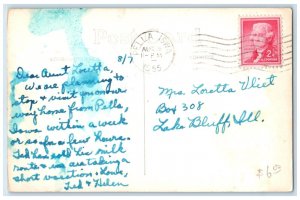 Post Card
PELLA
AUG
1955
2¢
8/7
Dear Aunt Loretta,
We are planning to
stop & visit you on our
way home from Pella,
Iowa within a week
or so for a few hours.
Ted has sold his milk
route & we are taking a
short vacation. Love,
Ted & Helen
Mrs Loretta Vliet
Box 308
Lake Bluff, Ill.